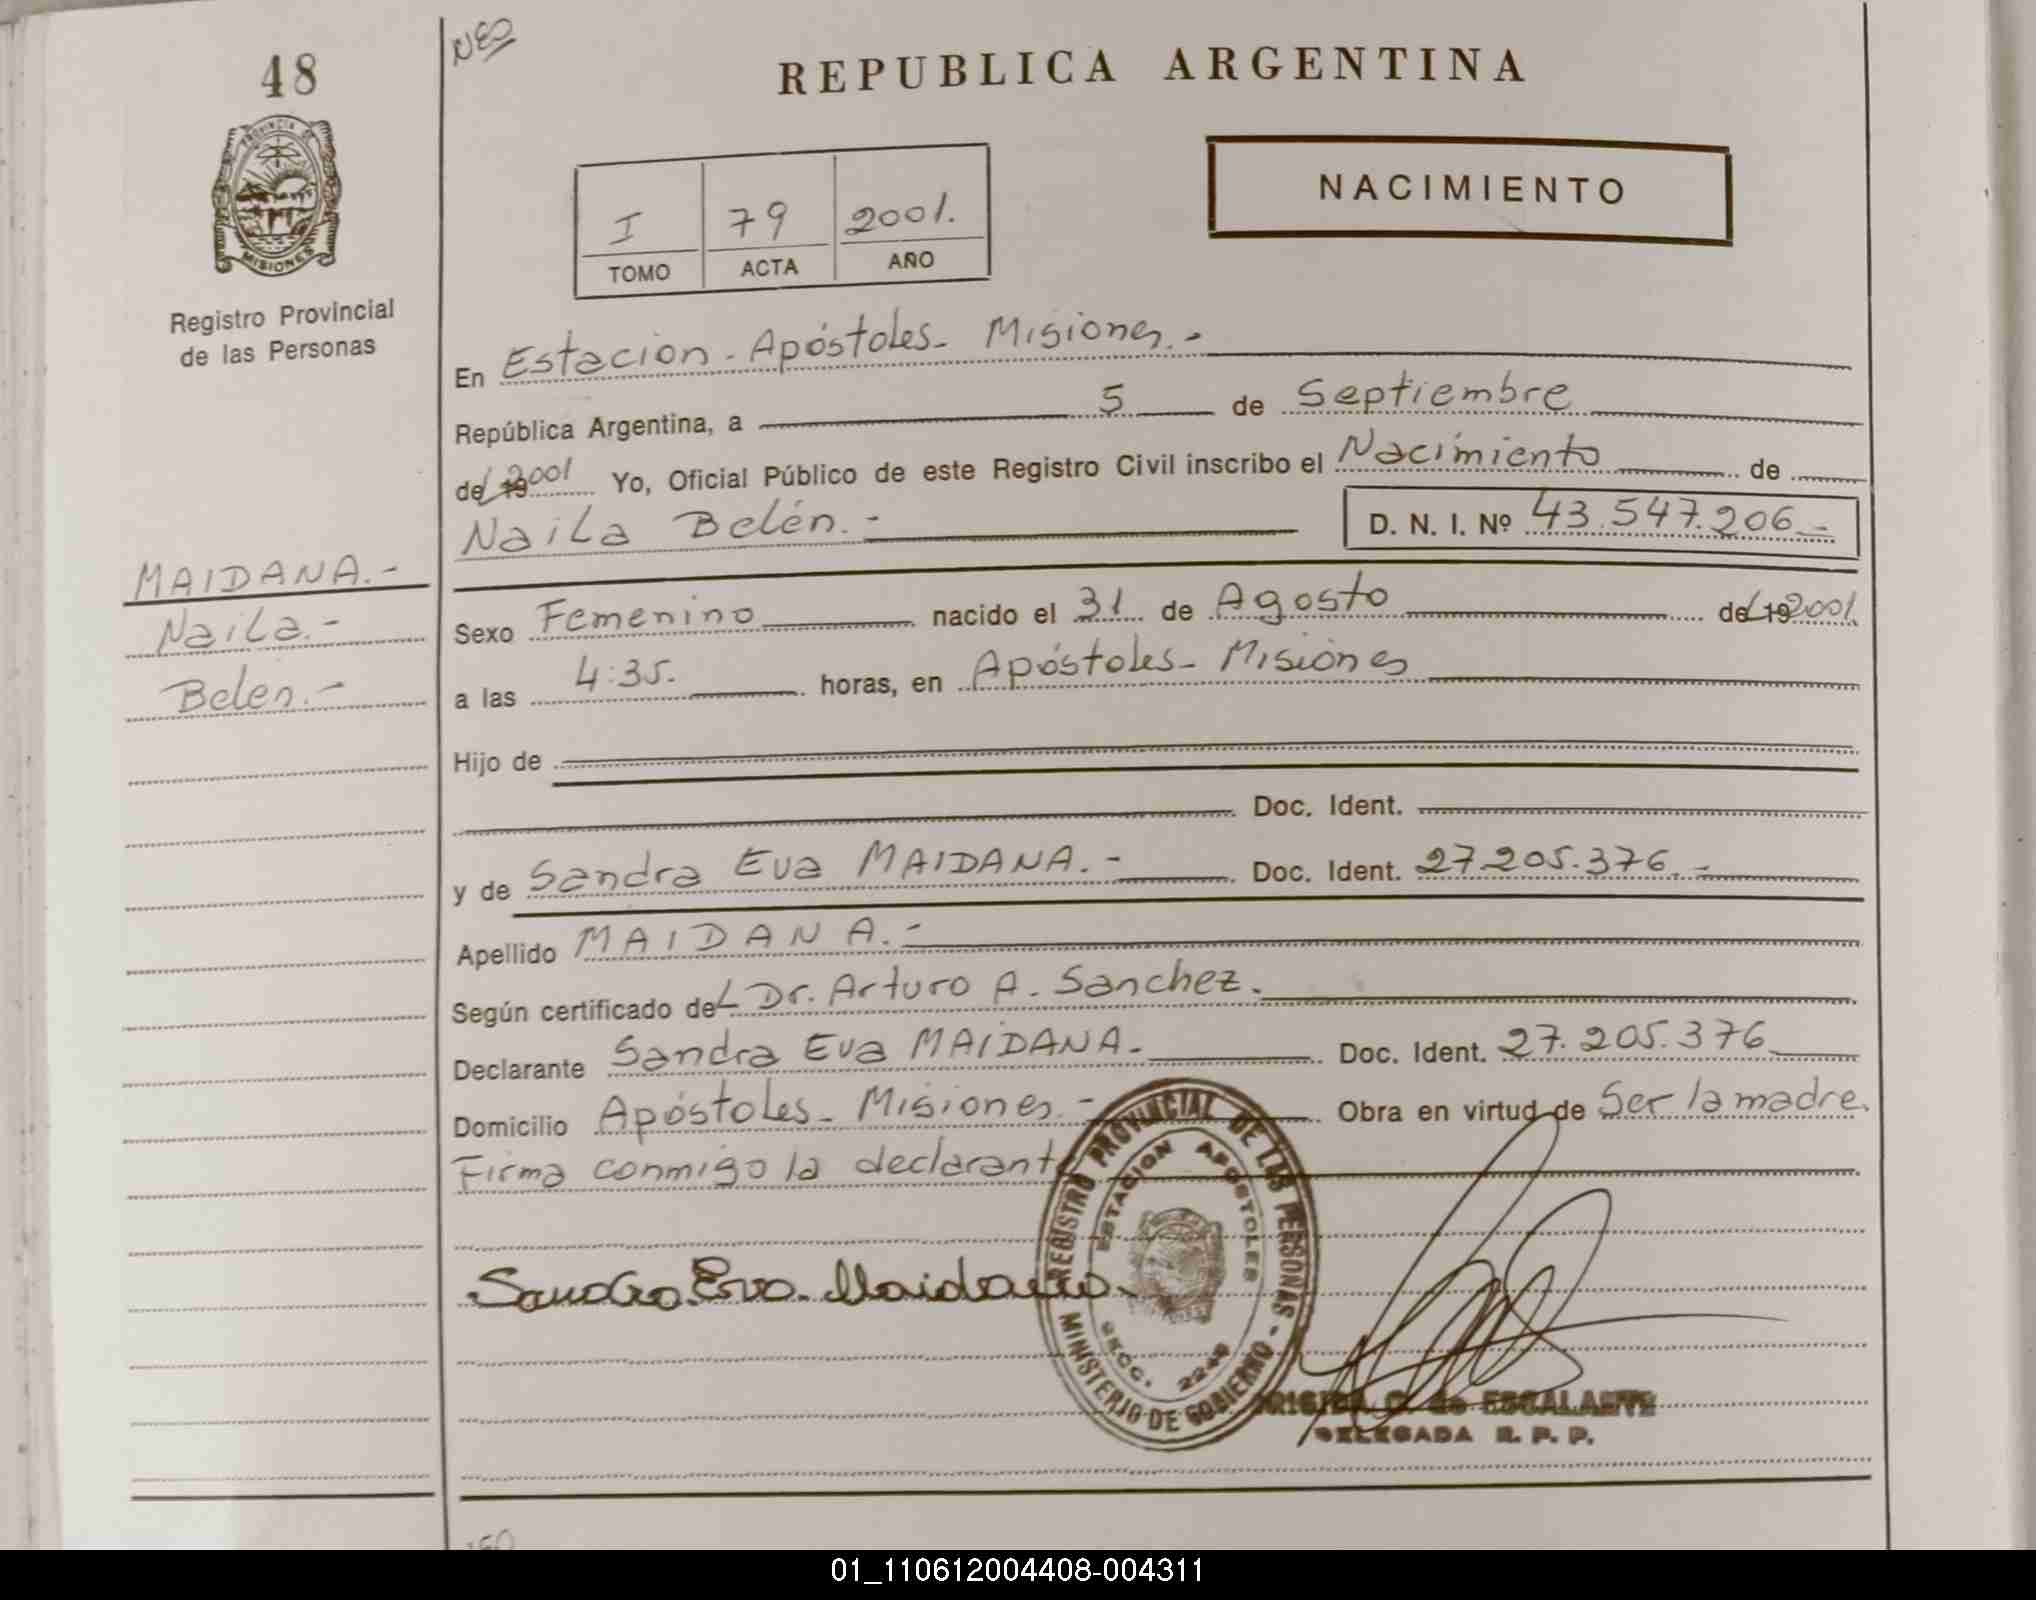 48
NEO
REPUBLICA ARGENTINA
PROVINCIA DE
MISIONES
Registro Provincial
de las Personas
I 79 2001.
TOMO ACTA AÑO
NACIMIENTO
En Estacion - Apóstoles - Misiones.-
República Argentina, a 5 de Septiembre
del 19 2001 Yo, Oficial Público de este Registro Civil inscribo el Nacimiento de
Naila Belén.- D. N. I. Nº 43.547.206.-
MAIDANA.-
Naila.-
Belen.-
Sexo Femenino nacido el 31 de Agosto del 19 2001.
a las 4:35. horas, en Apóstoles - Misiones
Hijo de
Doc. Ident.
y de Sandra Eva MAIDANA.- Doc. Ident. 27.205.376.-
Apellido MAIDANA.-
Según certificado del Dr. Arturo A. Sanchez.
Declarante Sandra Eva MAIDANA.- Doc. Ident. 27.205.376
Domicilio Apóstoles - Misiones.- Obra en virtud de Ser la madre.
Firma conmigo la declarante
REGISTRO PROVINCIAL DE LAS PERSONAS - MINISTERIO DE GOBIERNO
ESTACION APOSTOLES
SECC. 2248
Sandra Eva Maidana.
BRIGIDA C. de ESCALANTE
DELEGADA R. P. P.
01_110612004408-004311